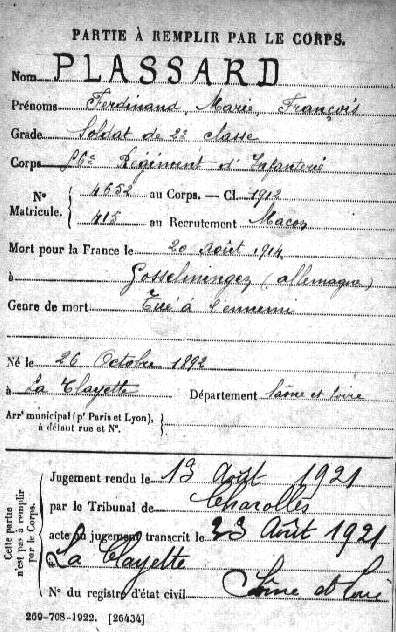 PARTIE À REMPLIR PAR LE CORPS.
Nom PLASSARD
Prénoms Ferdinand, Marie, François
Grade Soldat de 2e classe
Corps Régiment d'Infanterie
N° Matricule. { 4652 au Corps. — Cl. 1912
415 au Recrutement Macon
Mort pour la France le 20 Août 1914
à Gosselmingen (allemagne)
Genre de mort Tué à l'ennemi
Né le 26 Octobre 1892
à La Clayette Département Saône et Loire
Arrt municipal (pr Paris et Lyon), à défaut rue et N°. }
Cette partie n'est pas à remplir par le Corps.
Jugement rendu le 13 Août 1921
par le Tribunal de Charolles
acte ou jugement transcrit le 23 Août 1921
à La Clayette
N° du registre d'état civil Saône et Loire
269-708-1922. [26434]